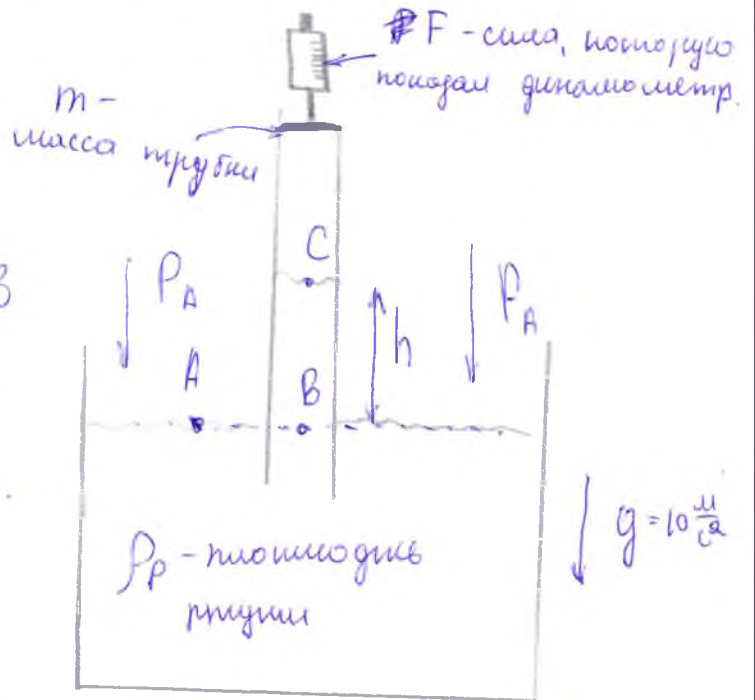 F - сила, которую
показал динамометр.
m -
масса трубки
C
P_A
P_A
h
A
B
g = 10 м/с²
ρ_р - плотность
ртути